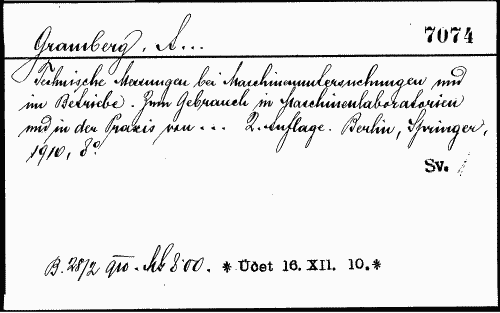 Gramberg, A...
7074
Technische Messungen bei Maschinenuntersuchungen und
im Betriebe. Zum Gebrauch in Maschinenlaboratorien
und in der Praxis von ... 2. Auflage. Berlin, Springer,
1910, 8°
Sv.
B. 28/2 910. Mk 8.00. * Udet 16. XII. 10.*